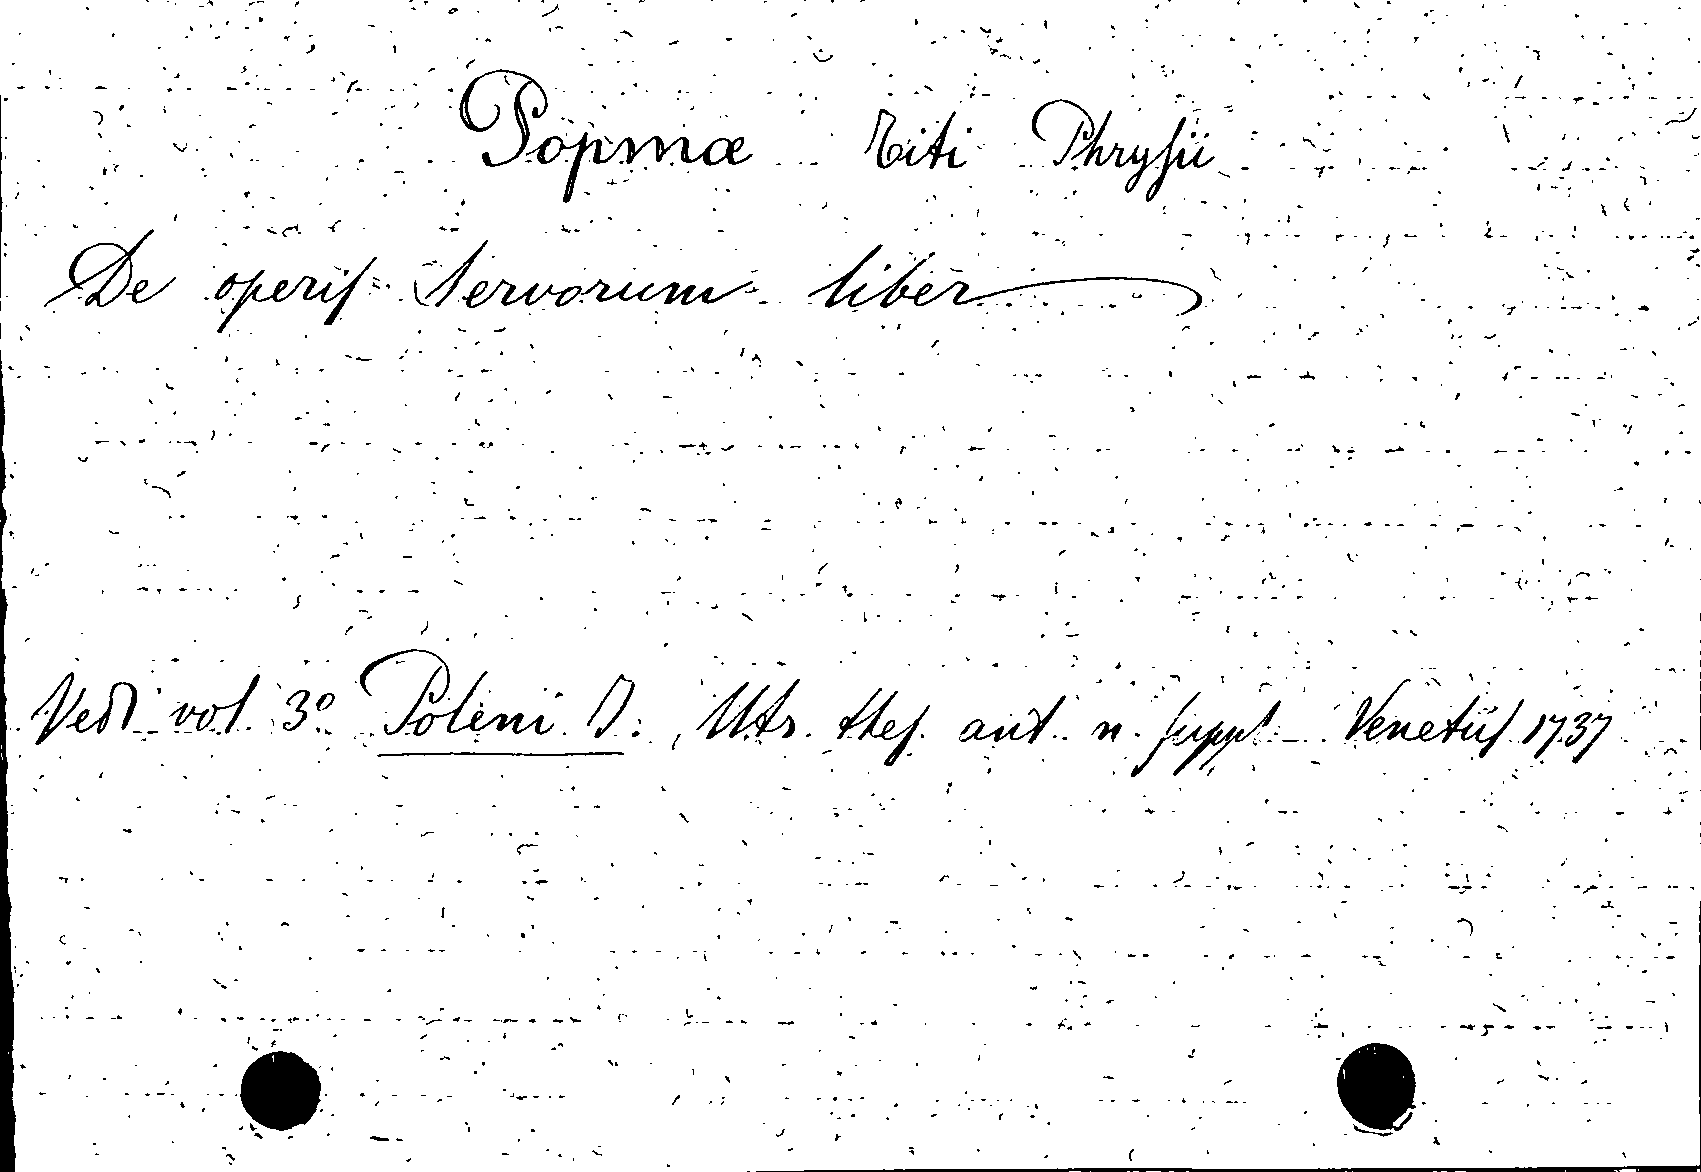 Popmæ Titi Phrysii
De operis servorum liber
Vedi vol. 3º Poleni I., Utr. thes. ant. n. suppl. Venetiis 1737